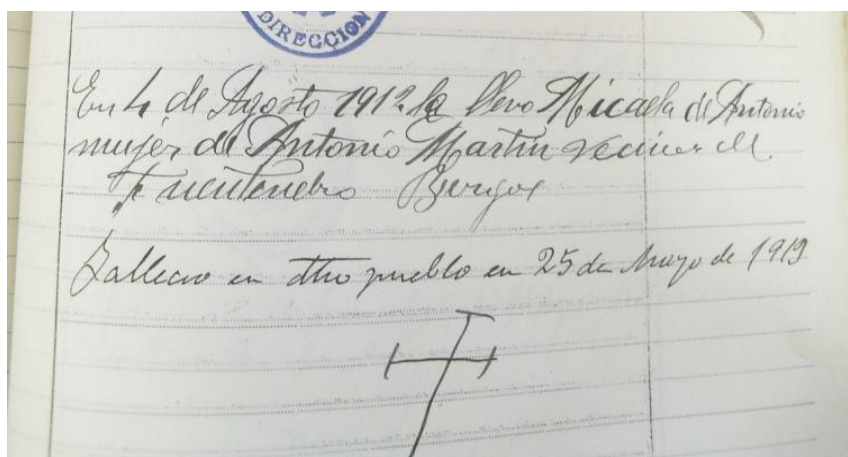 DIRECCION
En 4 de Agosto 1912 la llevo Micaela de Antonio
mujer de Antonio Martin vecinos de
Fuentenebro Burgos
Fallecio en dho pueblo en 25 de Mayo de 1913